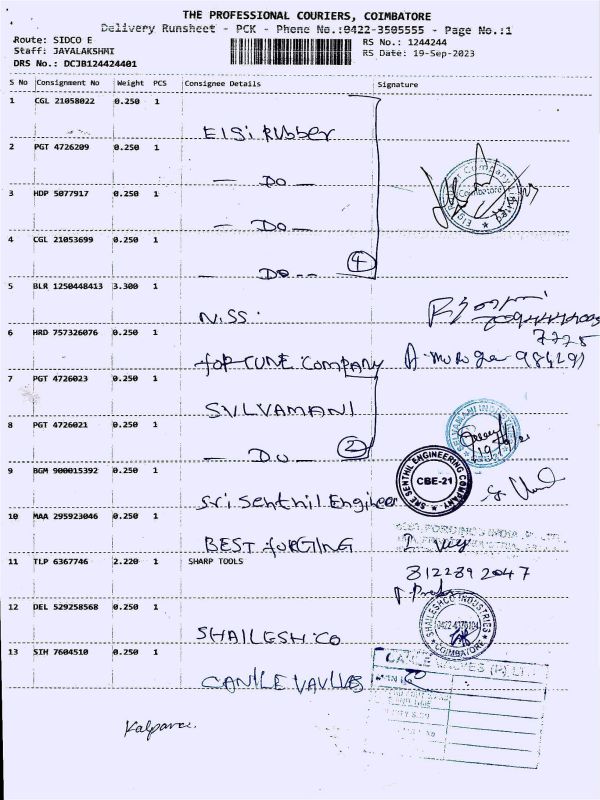 THE PROFESSIONAL COURIERS, COIMBATORE
Delivery Runsheet - PCK - Phone No.:0422-3505555 - Page No.:1
Route: SIDCO E
RS No.: 1244244
Staff: JAYALAKSHMI
RS Date: 19-Sep-2023
DRS No.: DCJB124424401
S No Consignment No Weight PCS Consignee Details Signature
1 CGL 21058022 0.250 1
Elgi Rubber
2 PGT 4726209 0.250 1
— Do —
3 HDP 5077917 0.250 1
— Do —
4 CGL 21053699 0.250 1
— Do -- 4
5 BLR 1250448413 3.300 1
N.SS.
6 HRD 757326076 0.250 1
7225
forTUNE Company A. Muruga 984291
7 PGT 4726023 0.250 1
SVLVAMANI
8 PGT 4726021 0.250 1
— Do — 2
9 BGM 900015392 0.250 1
SRE SENTHIL ENGINEERING COMPANY
CBE-21
Sri Senthil Engineer
10 MAA 295923046 0.250 1
BEST forGING
11 TLP 6367746 2.220 1 SHARP TOOLS
812289 2047
12 DEL 529258568 0.250 1
SHAILESHCO INDUSTRIES
0422-4370104
COIMBATORE
SHAILESH CO
13 SIH 7604510 0.250 1
CANILE VAVLVAS
Kalpana.